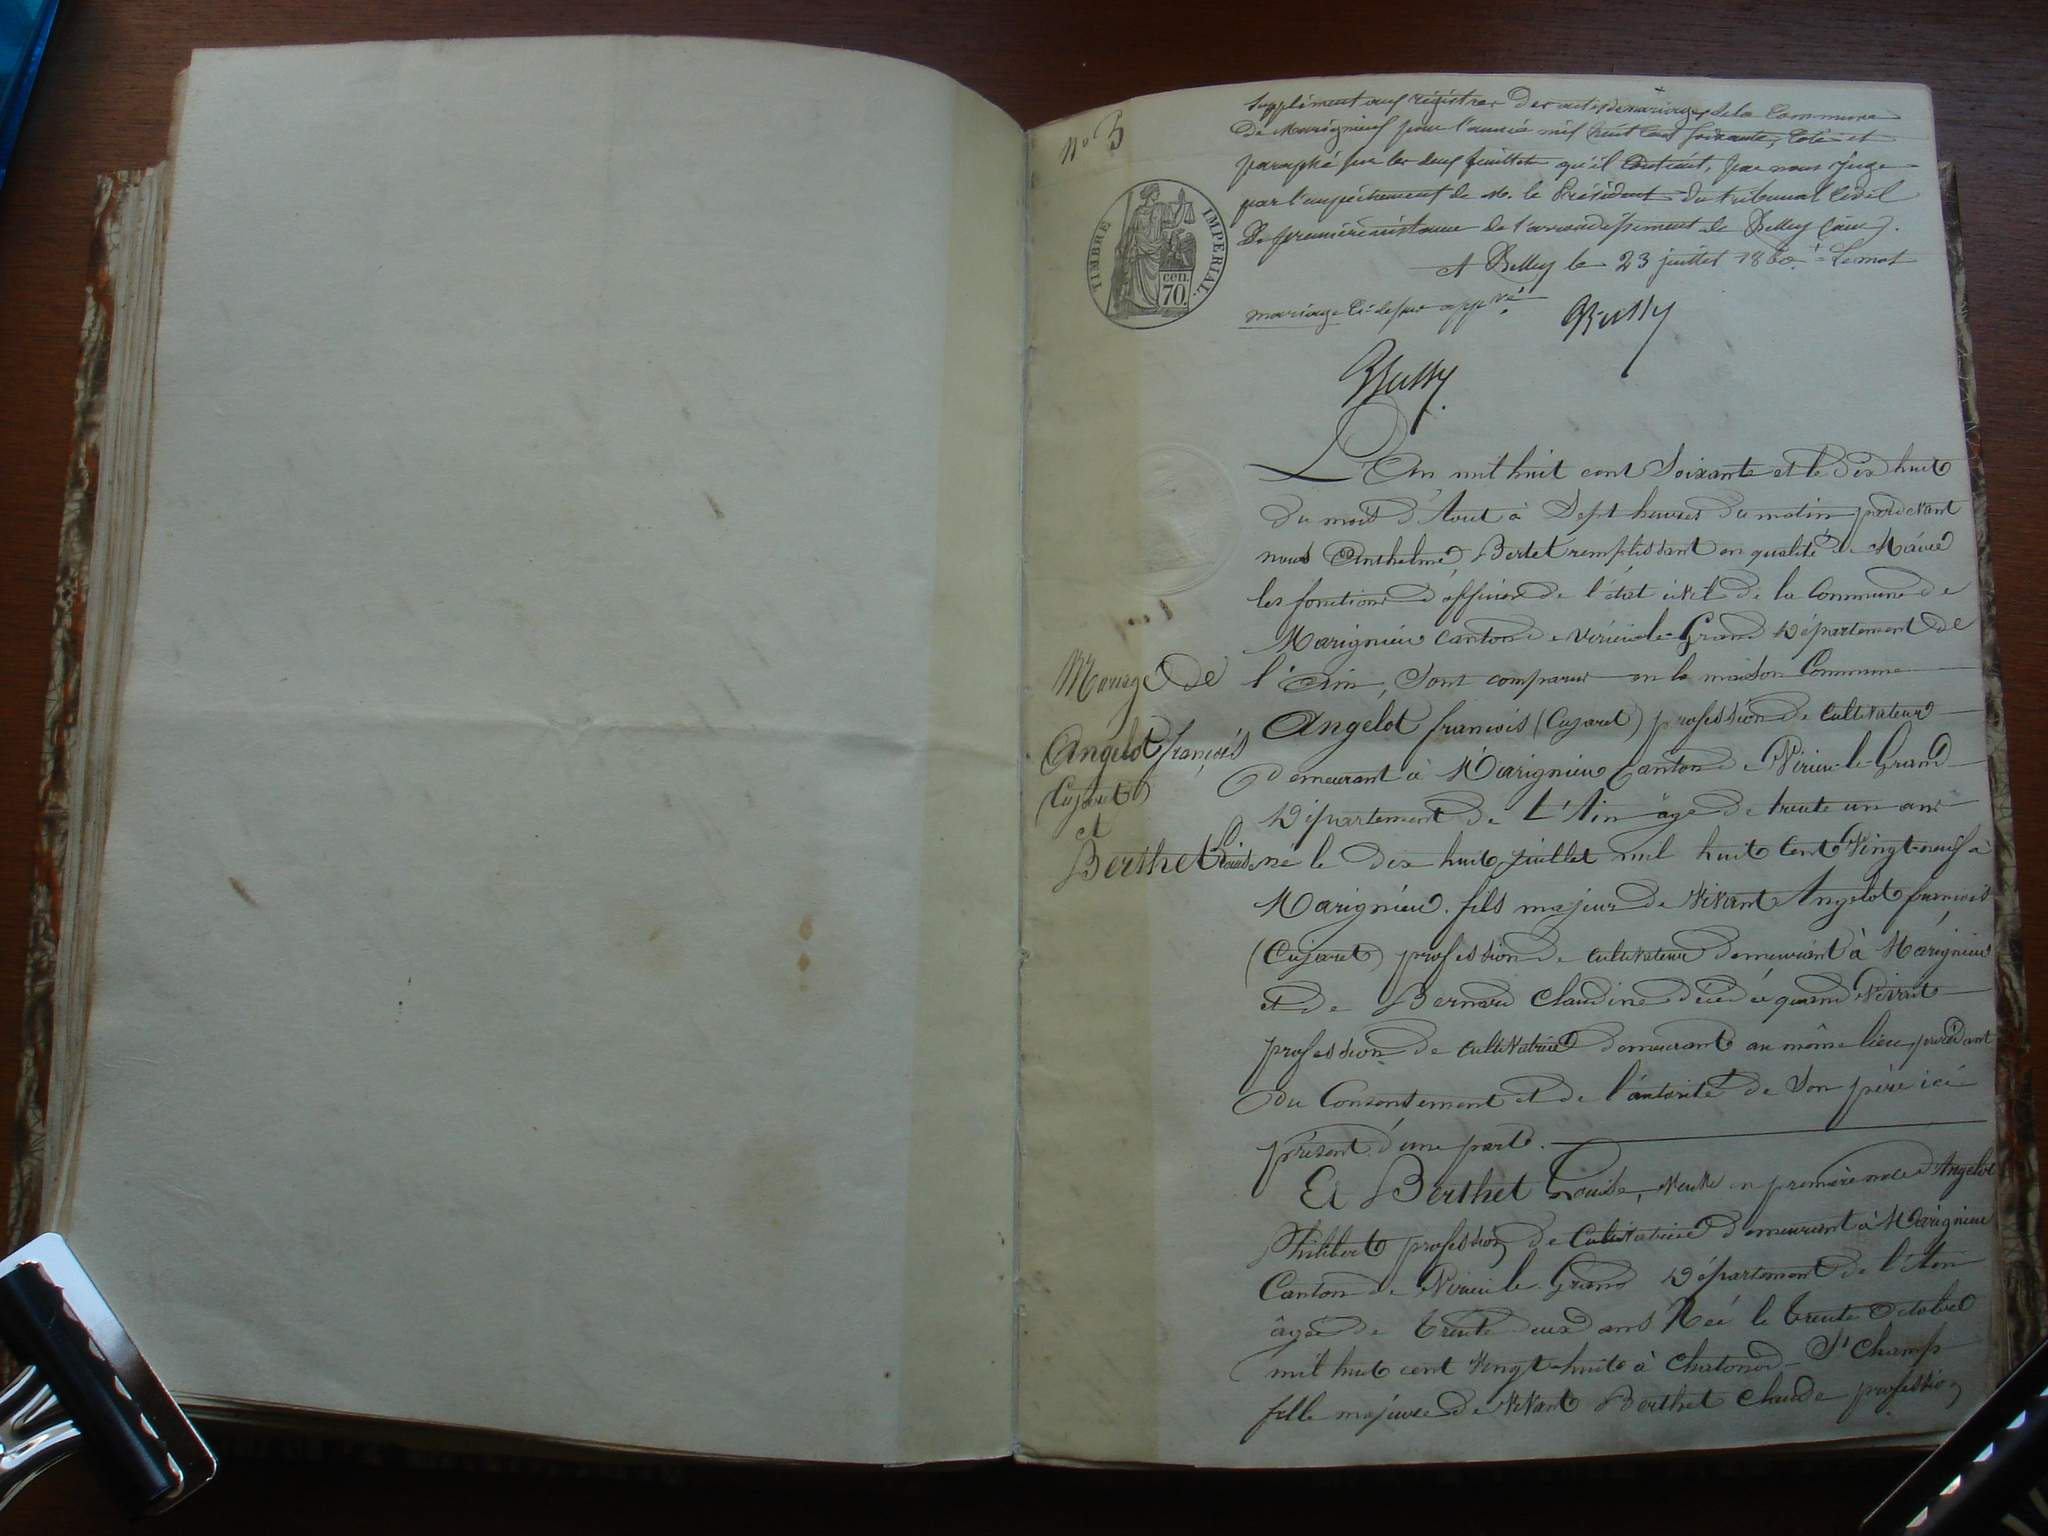 No 5
Supplément aux régistres des actes de mariages de la Commune
de Marignieu pour l'année mil huit cent soixante, coté et
paraphé sur les deux feuillets qu'il contient, par nous juge
par l'empêchement de M. le Président du tribunal Civil
De première instance de l'arrondissement de Belley (ain).
A Belley le 23 juillet 1860. Le mot
mariage ci-dessus appvé
TIMBRE IMPERIAL
70. cen.
L'An mil huit cent Soixante et le dix huit
du mois d'Aout à Sept heures du matin pardevant
nous Anthelme Bertet remplissant en qualité de Maire
les fonctions d'officier de l'état civil de la Commune de
Marignieu canton de Virieu-le-Grand Département de
l'Ain, Sont comparus en la maison Commune
Mariage de
Angelot françois
(Cujaret)
et
Berthet Louise
Angelot francois (Cujaret) profession de Cultivateur
demeurant à Marignieu Canton de Virieu-le-Grand
Département de L'Ain âgé de trente un ans
né le dix huit juillet mil huit Cent Vingt-neuf à
Marignieu. fils majeur de Vivant Angelot francois
(Cujaret) profession de cultivateur demeurant à Marignieu
et de Bernard Claudine décédée quand Vivait
profession de Cultivatrice demeurant au même lieu, procédant
du Consentement et de l'autorité de Son père ici
présent d'une part.
Et Berthet Louise, Veuve en première noce d'Angelot
Philibert profession de Cultivatrice demeurant à Marignieu
Canton de Virieu le Grand Département de l'Ain
âgée de trente deux ans Née le trente Octobre
mil huit cent Vingt-huit à Chatonod - St Champ
fille majeure de Vivant Berthet Claude profession